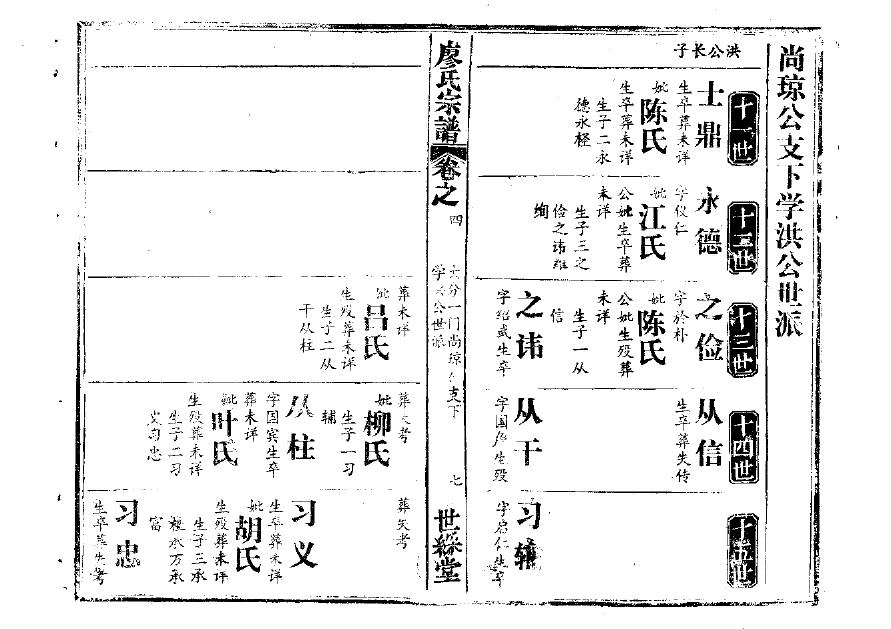 尚琼公支下学洪公世派
洪公长子
十一世
士鼎
生卒葬未详
妣陈氏
生卒葬未详
生子二永
德永柽
十二世
永德
字仪仁
妣江氏
公妣生卒葬
未详
生子三之
俭之讳维
绚
十三世
之俭
字於朴
妣陈氏
公妣生殁葬
未详
生子一从
信
之讳
字绍武生卒
十四世
从信
生卒葬失传
从干
字国彦生殁
十五世
习辅
字启仁生卒
廖氏宗譜
卷之四
大分一门尚琼公支下
学洪公世派
七
世綵堂
葬未详
妣吕氏
生殁葬未详
生子二从
干从柱
葬失考
妣柳氏
生子一习
辅
从柱
字国宾生卒
葬未详
妣叶氏
生殁葬未详
生子二习
义习忠
葬矢考
习义
生卒葬未详
妣胡氏
生殁葬未详
生子三承
权承万承
富
习忠
生卒葬失考